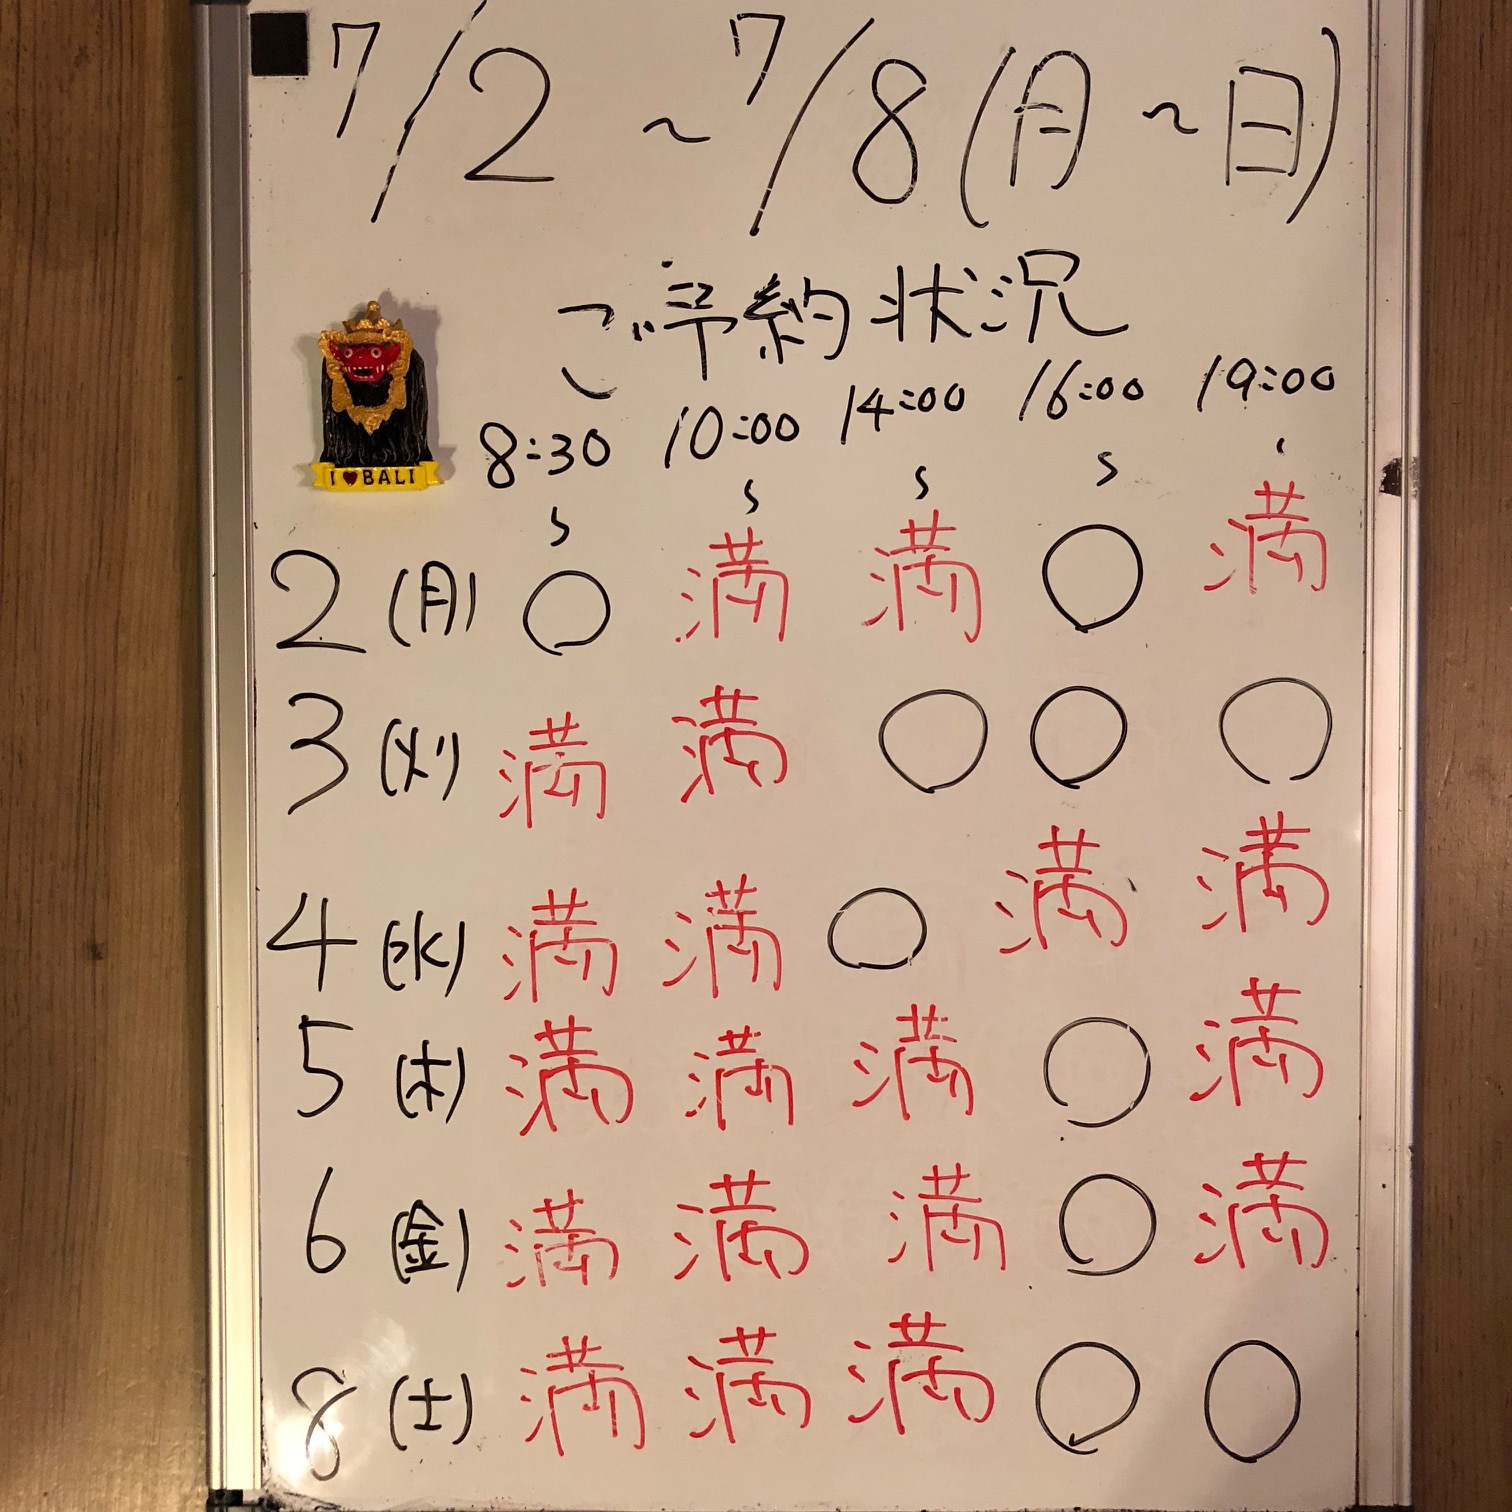 7/2 ~ 7/8 (月 ~ 日)
ご予約状況
I ♥ BALI
8:30 10:00 14:00 16:00 19:00
2 (月) ○ 満 満 ○ 満
3 (火) 満 満 ○ ○ ○
4 (水) 満 満 ○ 満 満
5 (木) 満 満 満 ○ 満
6 (金) 満 満 満 ○ 満
8 (土) 満 満 満 ○ ○